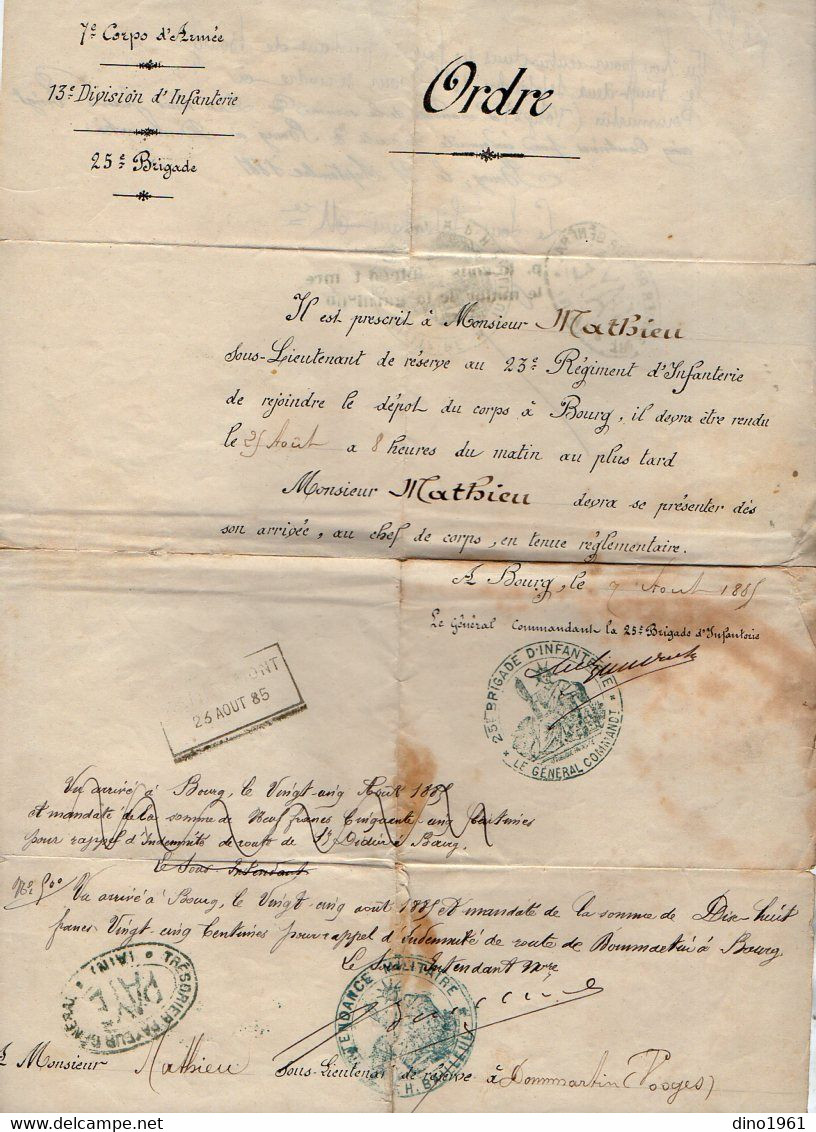 7e Corps d'Armée
13e Division d'Infanterie
25e Brigade
Ordre
Il est prescrit à Monsieur Mathieu
Sous-Lieutenant de réserve au 23e Régiment d'Infanterie
de rejoindre le dépot du corps à Bourg, il devra être rendu
le 25 Août a 8 heures du matin au plus tard
Monsieur Mathieu devra se présenter dès
son arrivée, au chef de corps, en tenue réglementaire.
A Bourg, le 7 Aout 1885
Le Général Commandant la 25e Brigade d'Infanterie
25E BRIGADE D'INFANTERIE
LE GÉNÉRAL COMMANDT
MONT
25 AOUT 85
Vu arrivé à Bourg, le Vingt-cinq Août 1885
et mandaté de la somme de Neuf francs Cinquante cinq Centimes
pour rappel d'Indemnité de route de St Didier à Bourg.
Le Sous Intendant
No 500 Vu arrivé à Bourg, le Vingt-cinq août 1885 et mandaté de la somme de Dix-huit
francs Vingt-cinq Centimes pour rappel d'Indemnité de route de Dommartin à Bourg
Le Sous Intendant Mre
TRÉSORIER PAYEUR GÉNÉRAL (AIN)
PAYÉ
INTENDANCE MILITAIRE
A Monsieur Mathieu Sous-Lieutenant de réserve à Dommartin (Vosges)
dino1961